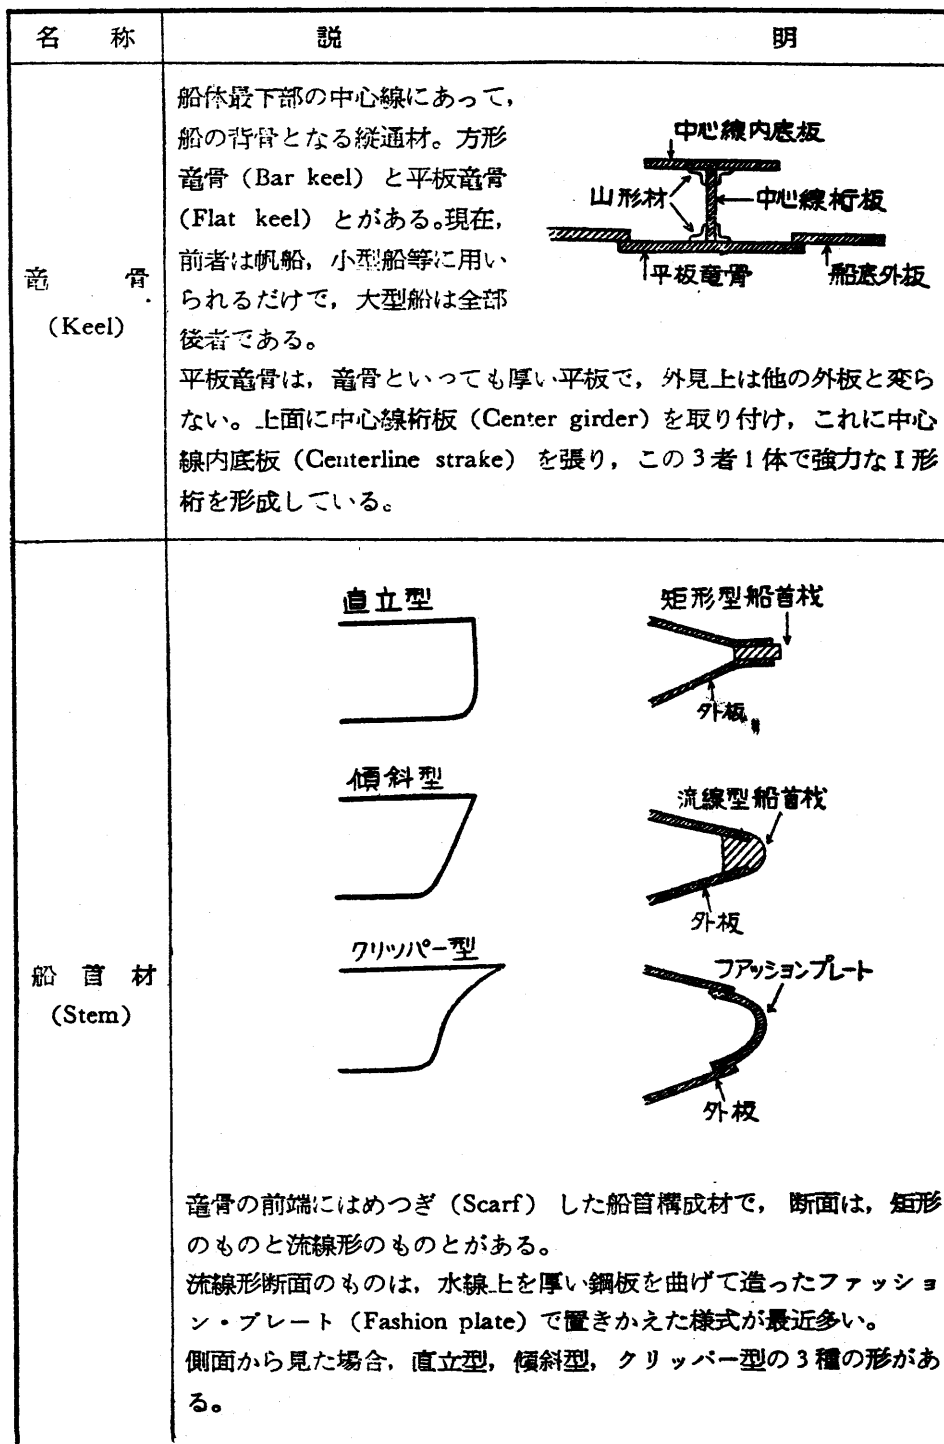 名称 説明
竜骨
(Keel)
船体最下部の中心線にあって，
船の背骨となる縦通材。方形
竜骨（Bar keel）と平板竜骨
(Flat keel) とがある。現在，
前者は帆船，小型船等に用い
られるだけで，大型船は全部
後者である。
中心線内底板
山形材
中心線桁板
平板竜骨
船底外板
平板竜骨は，竜骨といっても厚い平板で，外見上は他の外板と変ら
ない。上面に中心線桁板（Center girder）を取り付け，これに中心
線内底板（Centerline strake）を張り，この3者1体で強力なI形
桁を形成している。
船首材
(Stem)
直立型
矩形型船首材
外板
傾斜型
流線型船首材
外板
クリッパー型
フアッションプレート
外板
竜骨の前端にはめつぎ（Scarf）した船首構成材で，断面は，矩形
のものと流線形のものとがある。
流線形断面のものは，水線上を厚い鋼板を曲げて造ったファッショ
ン・プレート（Fashion plate）で置きかえた様式が最近多い。
側面から見た場合，直立型，傾斜型，クリッパー型の3種の形があ
る。